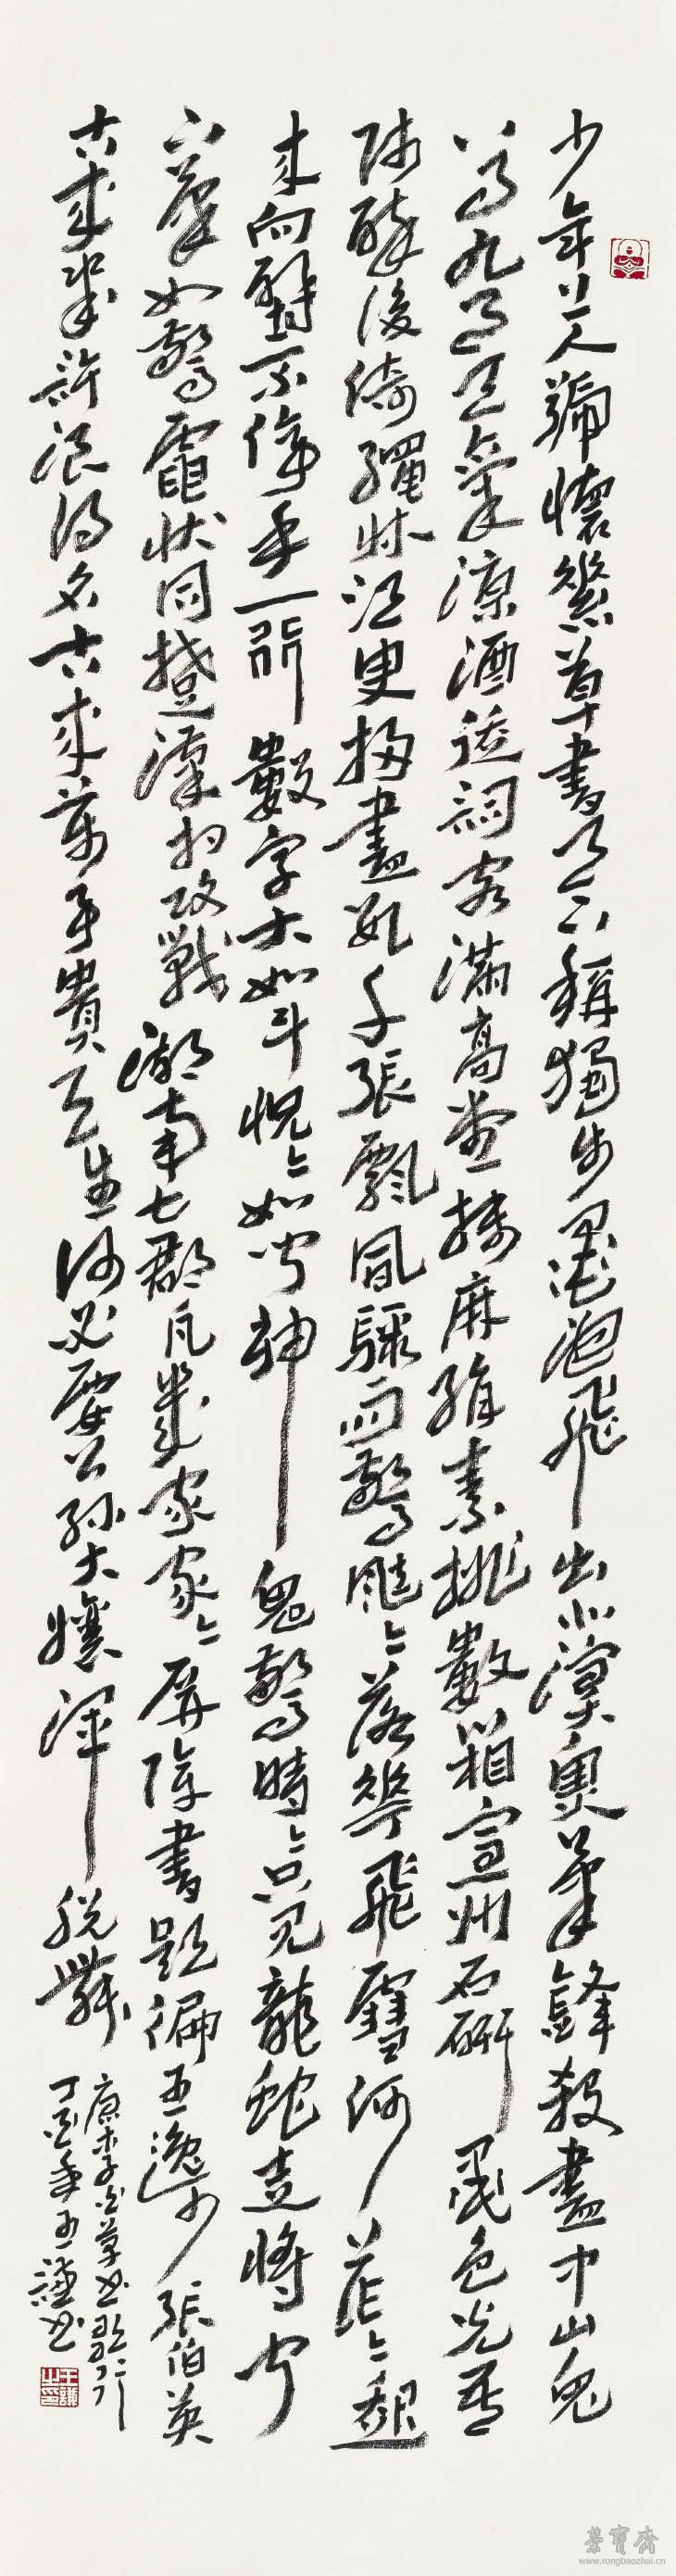 少年上人號懷素草書天下稱獨步墨池飛出北溟魚筆鋒殺盡中山兔
八月九月天氣涼酒徒詞客滿高堂牋麻絹素排數箱宣州石硯墨色光吾
師醉後倚繩牀須臾掃盡數千張飄風驟雨驚颯々落華飛雪何茫々起
來向壁不停手一行數字大如斗怳々如聞神鬼驚時々只見龍蛇走
如驚電狀同楚漢相攻戰湖南七郡凡幾家家々屏障書題徧王逸少張伯英
古來幾許浪得名古來萬事貴天生何必要公孫大孃渾脫舞
唐李白草書歌行
丁酉年王謙書
王謙之印
榮寶齋
www.rongbaozhai.cn